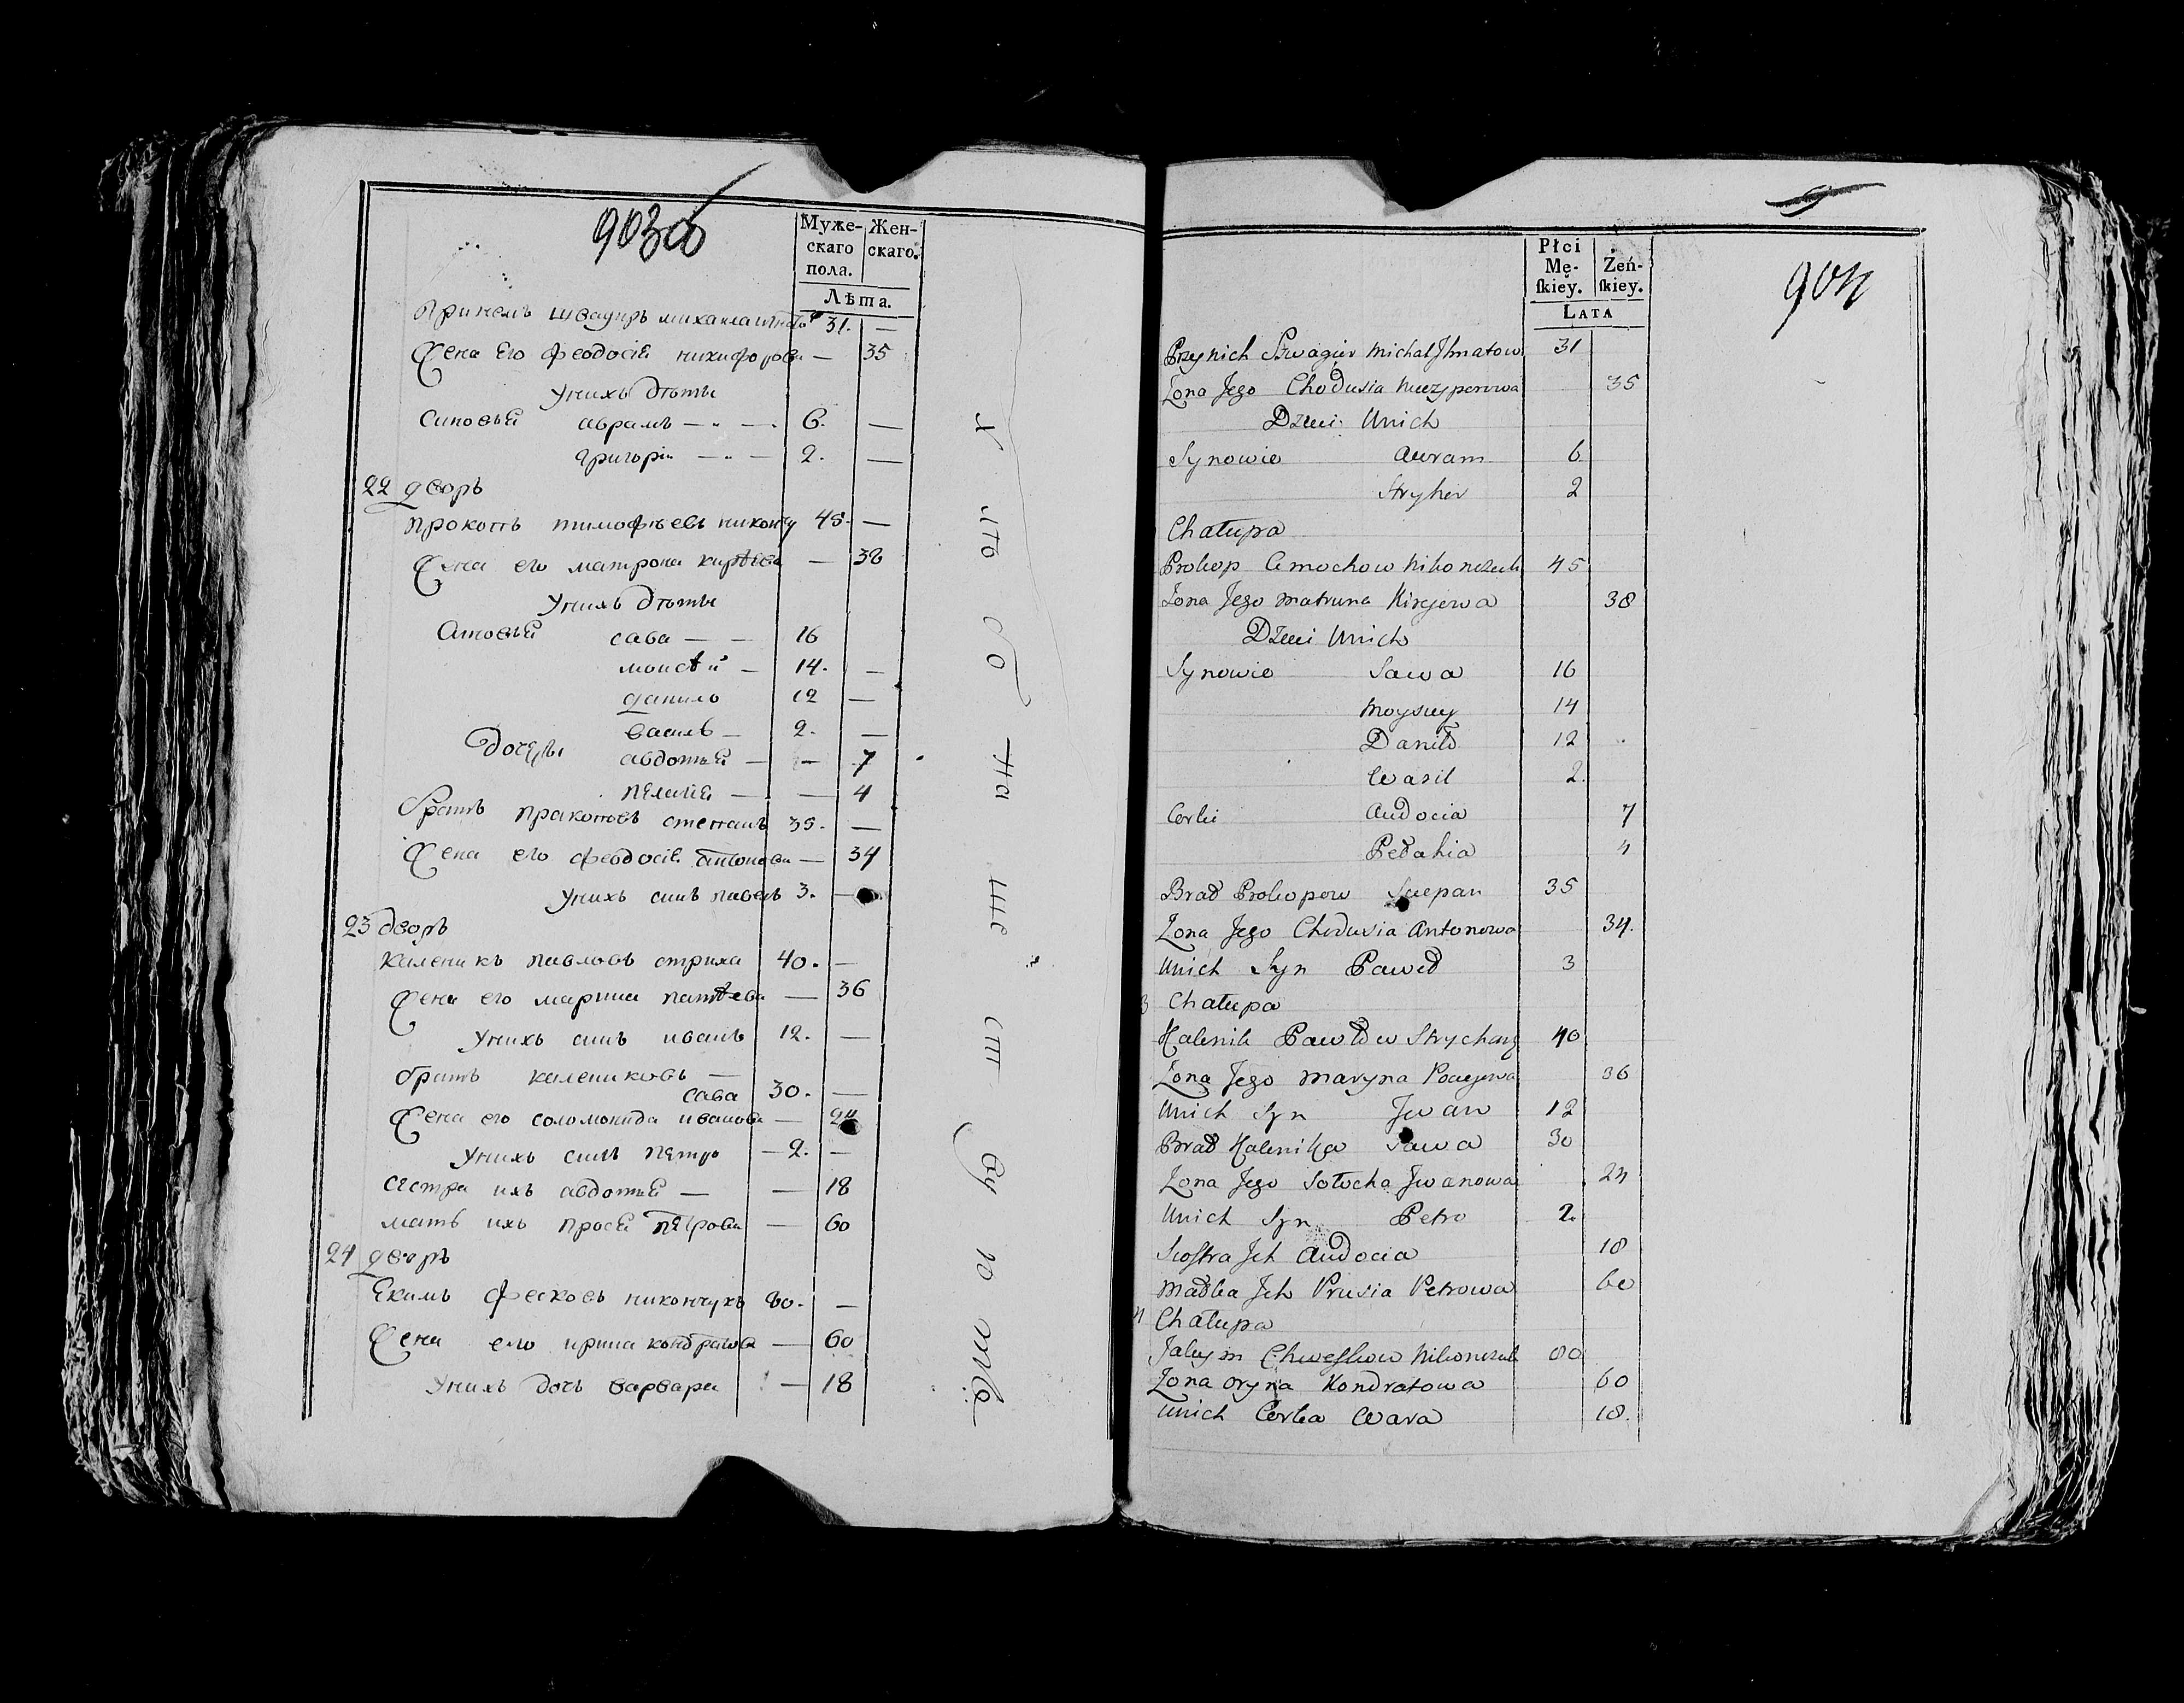 903об
Муже- Жен-
скаго скаго.
пола.
Лѣта.
Принемъ швагиръ михаила 31. —
Жена Его феодосiя никифорова — 35
Унихъ дѣты
Синовья аврамъ 6. —
григорiи 2. —
22 дворъ
прокопъ тимофѣевъ никончу 45. —
Жена его матрона кирѣева — 38
Унихъ дѣты
Синовья сава — 16
моисѣй — 14. —
данило 12 —
василь — 2. —
Дочеры авдотья — — 7
пелагея — — 4
Братъ пракоповъ степанъ 35. —
Жена его феодосiя антонова — 34
Унихъ синъ павелъ 3. —
23 дворъ
Каленикъ павловъ стриха 40. —
Жена его марина патѣева — 36
Унихъ синъ иванъ 12. —
братъ калениковъ —
сава 30. —
Жена его соломонида иванова — 24
Унихъ синъ петро — 2. —
сестра ихъ авдотья — — 18
мать ихъ прося петрова — 60
24 дворъ
Екимъ фесковъ никончукъ 80. —
Жена его ирина кондратова — 60
Унихъ дочъ варвара — 18
Płci
Mę- Żeń-
skiey. skiey.
LATA
904
Przy nich Szwagier Michał Ihnatow 31
Żona Jego Chodusia Niczyporowa 35
Dzieci Unich
Synowie Awram 6
Hryhor 2
Chałupa
Prokop Cimochow Nikonczuk 45
Żona Jego Matruna Kirejewa 38
Dzieci Unich
Synowie Sawa 16
Moysiey 14
Daniło 12
Wasil 2.
Corki Audocia 7
Pełahia 4
Brat Prokopow Sciepan 35
Żona Jego Chodusia Antonowa 34.
Unich Syn Paweł 3
3 Chałupa
Kalenik Pawłow Strycharz 40
Żona Jego Maryna Pociejewa 36
Unich Syn Jwan 12
Brat Kalenika Sawa 30
Żona Jego Sołocha Jwanowa 24
Unich Syn Petro 2.
Siostra Jch Audocia 18
Matka Jch Prusia Petrowa 60
4 Chałupa
Jakym Chweskow Nikonczuk 80
Żona Oryna Kondratowa 60
Unich Corka Wara 18.